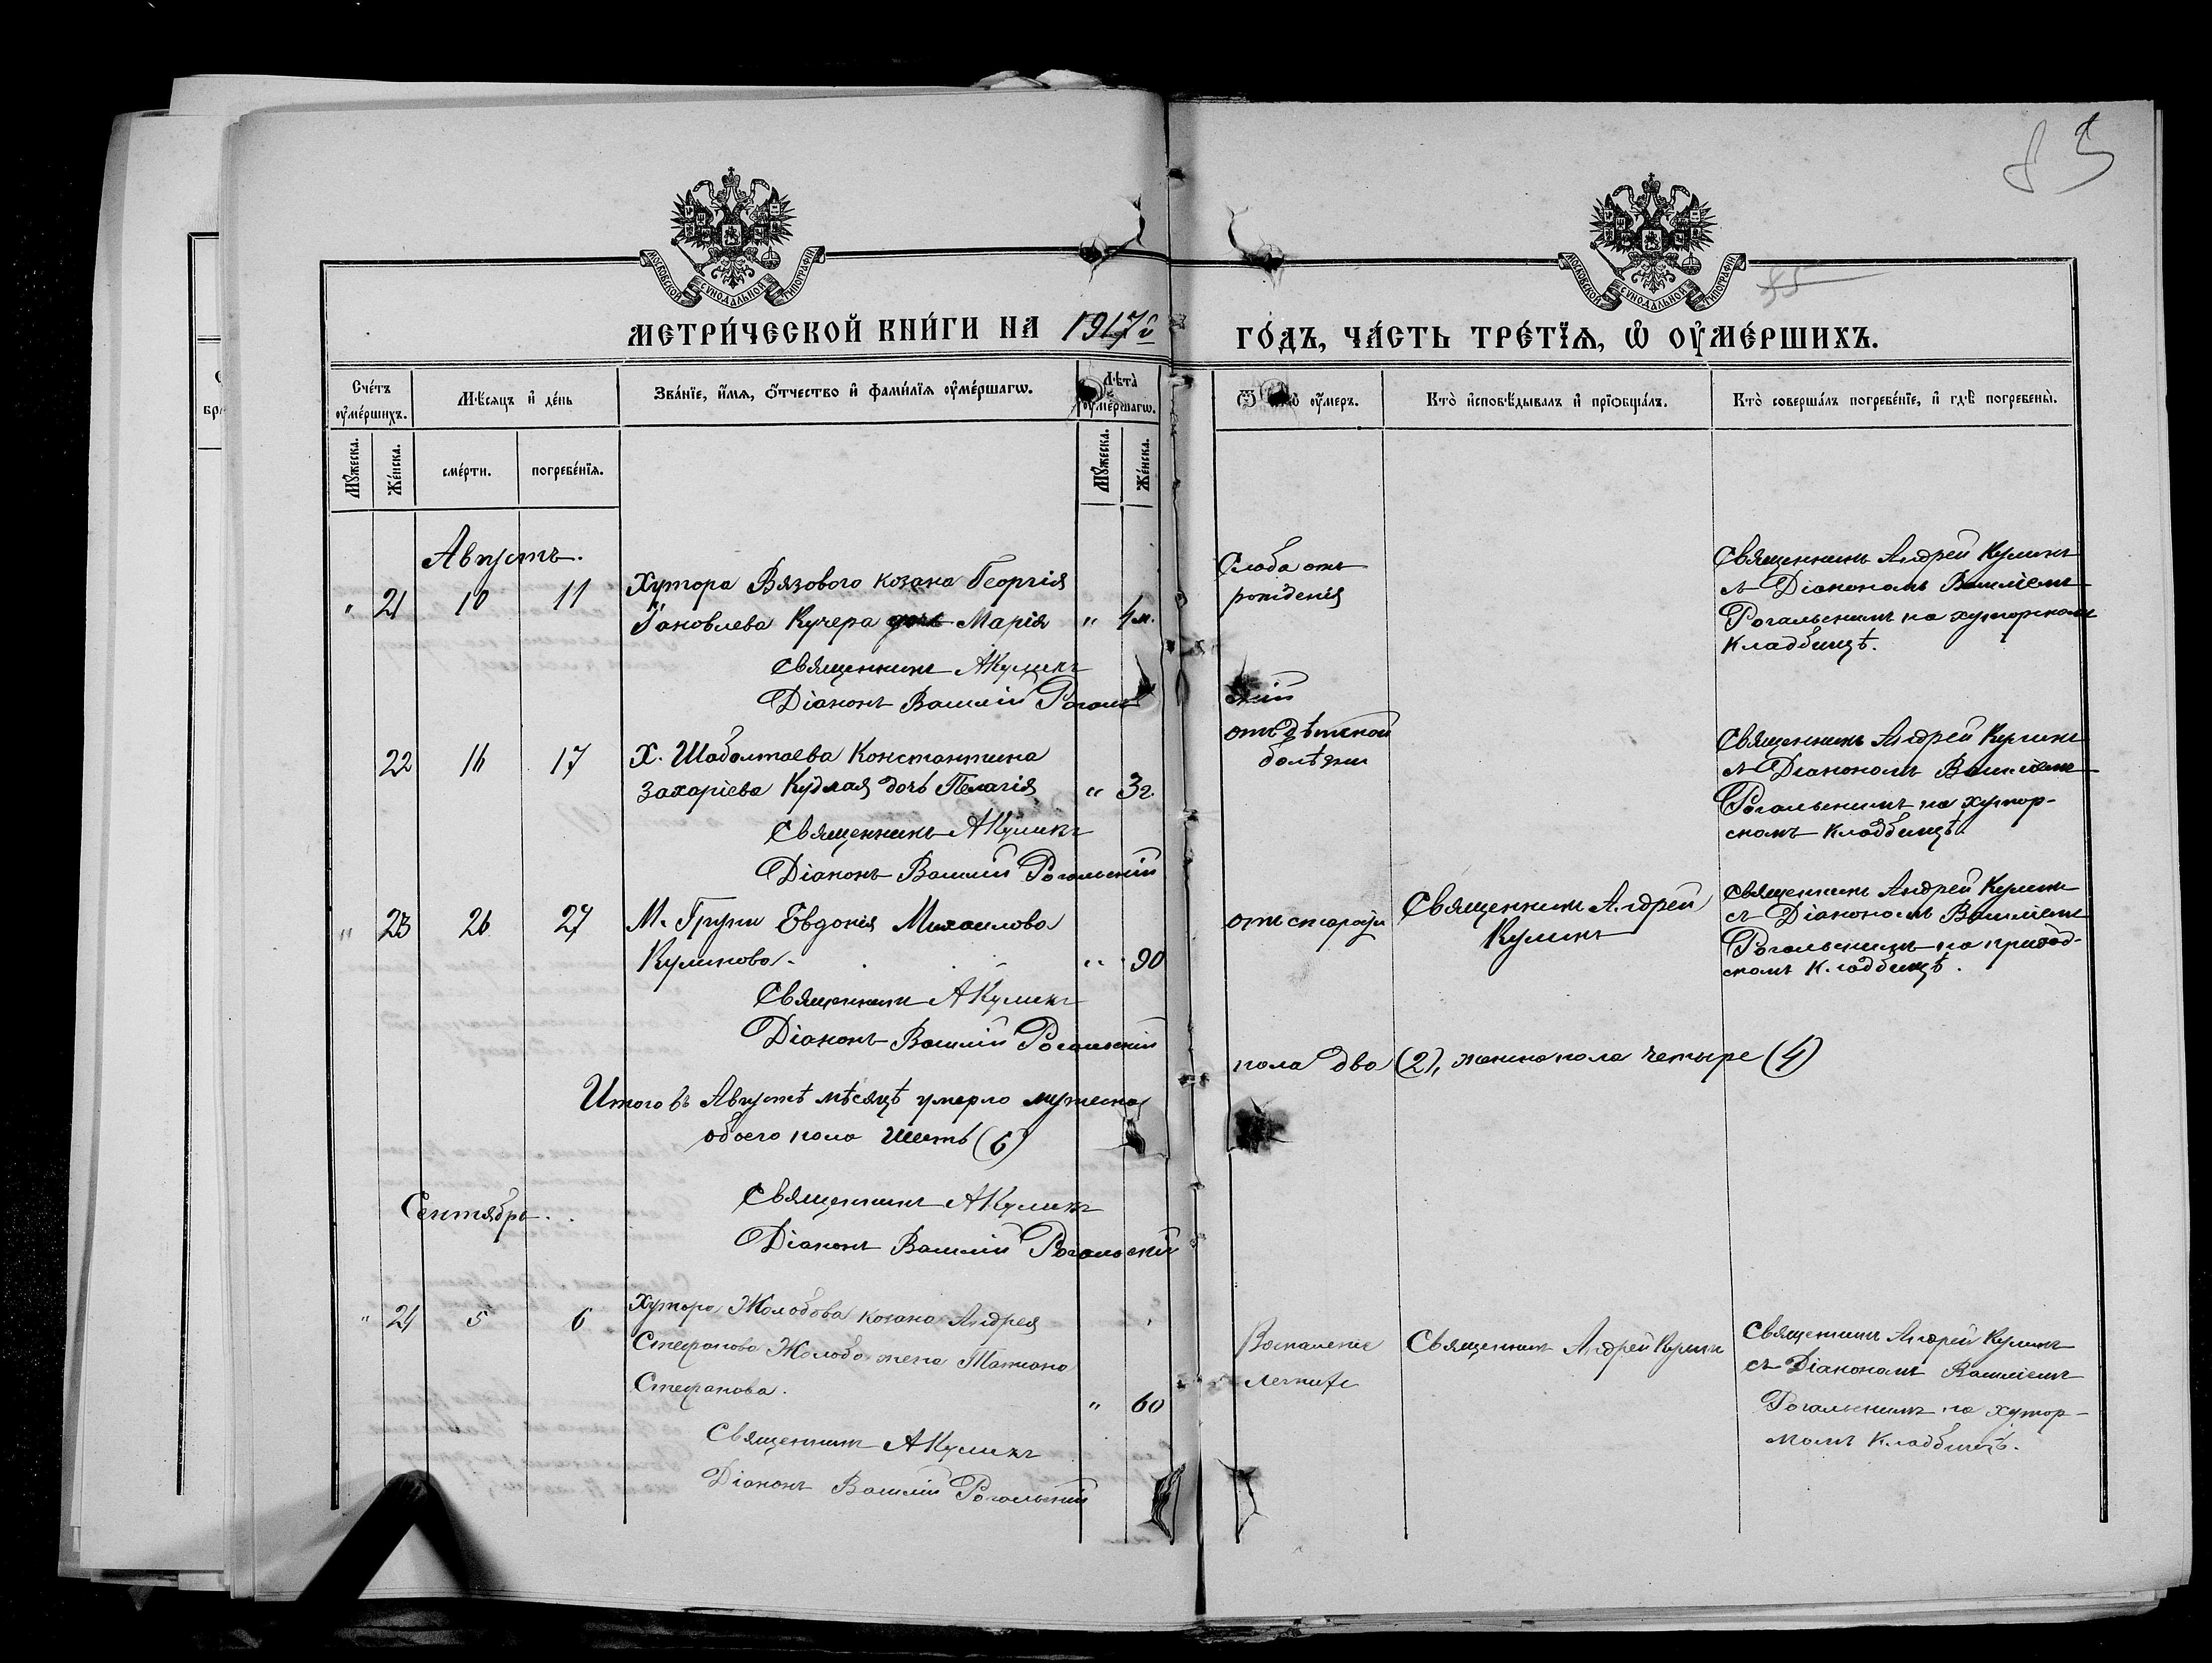 85
МОСКОВСКОЙ СУНОДАЛЬНОЙ ТИПОГРАФІИ
МОСКОВСКОЙ СУНОДАЛЬНОЙ ТИПОГРАФІИ
85
МЕТРИ́ЧЕСКОЙ КНИ́ГИ НА 1917й ГО́ДЪ, ЧА́СТЬ ТРЕ́ТЇѦ, Ѡ҆ ОУ҆МЕ́РШИХЪ.
Сче́тъ оу҆ме́ршихъ.
Мѣ́сяцъ и҆ де́нь
Зва́нїе, и҆́мѧ, ѻ҆́тчество и҆ фами́лїѧ оу҆ме́ршагѡ.
Лѣта̀ оу҆ме́ршагѡ.
оу҆́меръ.
Кто̀ и҆сповѣ́дывалъ и҆ прїѻбща́лъ.
Кто̀ соверша́лъ погребе́нїе, и҆ гдѣ̀ погребены̀.
Мꙋ́жеска.
Же́нска.
сме́рти.
погребе́нїѧ.
Мꙋ́жеска.
Же́нска.
Августъ.
" 21 10 11
Хутора Вязового козака Георгія
Іаковлева Кучера дочь Марія " 4 м.
Священникъ АКуликъ
Діаконъ Василій Рогальскій
Слаба отъ
рожденія
Священникъ Андрей Куликъ
съ Діакономъ Василіемъ
Рогальскимъ на хуторскомъ
Кладбищѣ.
22 16 17
Х. Шабалтаева Константина
Захаріева Кудлая дочь Пелагія " 3 г.
Священникъ АКуликъ
Діаконъ Василій Рогальскій
отъ дѣтской
болѣзни
Священникъ Андрей Куликъ
съ Діакономъ Василіемъ
Рогальскимъ на хутор-
скомъ кладбищѣ.
" 23 26 27
М. Груни Евдокія Михаилова
Куликова. " 90
Священникъ АКуликъ
Діаконъ Василій Рогальскій
отъ старости
Священникъ Андрей
Куликъ
Священникъ Андрей Куликъ
съ Діакономъ Василіемъ
Рогальскимъ на приход-
скомъ кладбищѣ.
Итого въ Августѣ мѣсяцѣ умерло мужеска пола два (2), женска пола четыре (4)
обоего пола шесть (6)
Священникъ АКуликъ
Діаконъ Василій Рогальскій
Сентябрь.
" 24 5 6
Хутора Жолобова козака Андрея
Стефанова Жолоба жена Татіана
Стефанова. " 60
Священникъ АКуликъ
Діаконъ Василій Рогальскій
Воспаленіе
легкихъ
Священникъ Андрей Куликъ
Священникъ Андрей Куликъ
съ Діакономъ Василіемъ
Рогальскимъ на хутор-
скомъ кладбищѣ.